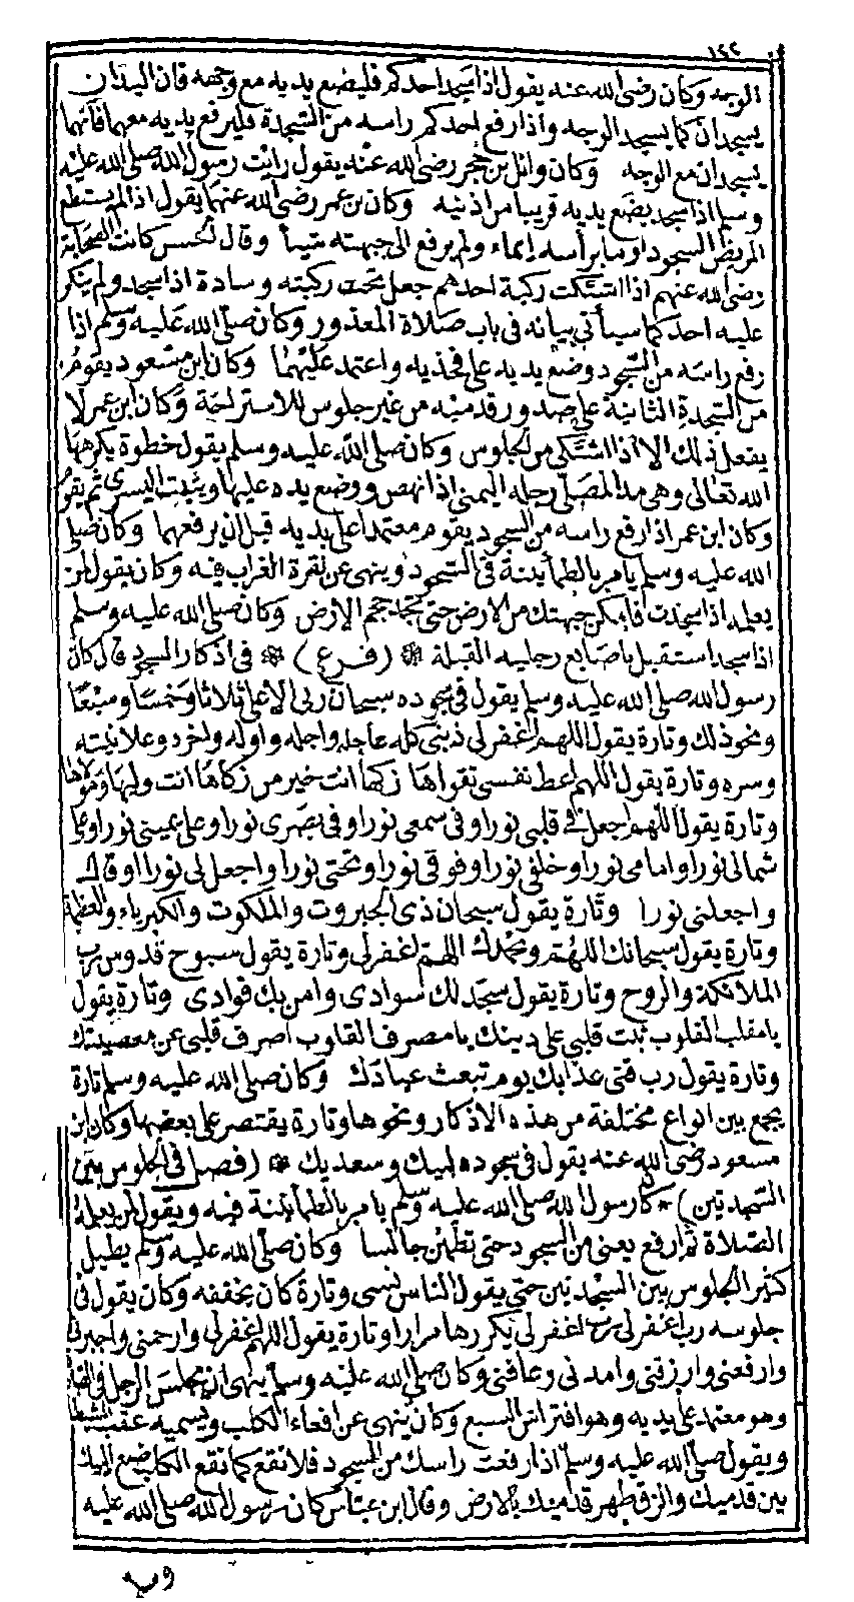 ١٢٢
الوجه وكان رضى الله عنه يقول اذا سجد احدكم فليضع يديه مع وجهه فان اليدان
يسجدان كما يسجد الوجه واذا رفع احدكم راسه من السجدة فليرفع يديه معهما فانهما
يسجدان مع الوجه وكان وائل بن حجر رضى الله عنه يقول رايت رسول الله صلى الله عليه
وسلم اذا سجد يضع يديه قريبا من اذنيه وكان بن عمر رضى الله عنهما يقول اذا لم يستطع
المريض السجود اوما براسه إيماء ولم يرفع الى جبهته شيأ وقال الحسن كانت الصحابة
رضى الله عنهم اذا اشتكت ركبة احدهم جعل تحت ركبته وسادة اذا سجد ولم ينكر
عليه احد كما سيأتى بيانه فى باب صلاة المعذور وكان صلى الله عليه وسلم اذا
رفع راسه من السجود وضع يديه على فخذيه واعتمد عليهما وكان ابن مسعود يقوم
من السجدة الثانية على صدور قدميه من غير جلوس للاستراحة وكان ابن عمر لا
يفعل ذلك الا اذا اشتكى من الجلوس وكان صلى الله عليه وسلم يقول خطوة يكرهها
الله تعالى وهى مد المصلى رجله اليمنى اذا نهض ووضع يده عليها ويثبت اليسرى ثم يقوم
وكان ابن عمر اذا رفع راسه من السجود يقوم معتمدا على يديه قبل ان يرفعهما وكان صلى
الله عليه وسلم يامر بالطمأنينة فى السجود وينهى عن نقرة الغراب فيه وكان يقول لمن
يعلمه اذا سجدت فامكن جبهتك من الارض حتى تجد حجم الارض وكان صلى الله عليه وسلم
اذا سجد استقبل باصابع رجليه القبلة ❁ (فرع) ❁ فى اذكار السجود كان
رسول الله صلى الله عليه وسلم يقول فى سجوده سبحان ربى الاعلى ثلاثا وخمسا وسبعا
ونحو ذلك وتارة يقول اللهم اغفر لى ذنبى كله عاجله واجله واوله واخره وعلانيته
وسره وتارة يقول اللهم اعط نفسى تقواها زكها انت خير من زكاها انت وليها ومولاها
وتارة يقول اللهم اجعل فى قلبى نورا وفى سمعى نورا وفى بصرى نورا وعلى يمينى نورا وعلى
شمالى نورا وامامى نورا وخلفى نورا وفوقى نورا وتحتى نورا واجعل لى نورا اوقال
واجعلنى نورا وتارة يقول سبحان ذى الجبروت والملكوت والكبرياء والعظمة
وتارة يقول سبحانك اللهم وبحمدك اللهم اغفر لى وتارة يقول سبوح قدوس رب
الملائكة والروح وتارة يقول سجد لك سوادى وامن بك فوادى وتارة يقول
يا مقلب القلوب ثبت قلبى على دينك يا مصرف القلوب اصرف قلبى عن معصيتك
وتارة يقول رب قنى عذابك يوم تبعث عبادك وكان صلى الله عليه وسلم تارة
يجمع بين انواع مختلفة من هذه الاذكار ونحوها وتارة يقتصر على بعضها وكان ابن
مسعود رضى الله عنه يقول فى سجوده لبيك وسعديك ❁ (فصل فى الجلوس بين
السجدتين) ❁ كان رسول الله صلى الله عليه وسلم يامر بالطمأنينة فيه ويقول لمن يعلمه
الصلاة ثم ارفع يعنى من السجود حتى تطمئن جالسا وكان صلى الله عليه وسلم يطيل
كثير الجلوس بين السجدتين حتى يقول الناس نسى وتارة كان يخففه وكان يقول فى
جلوسه رب اغفر لى رب اغفر لى يكررها مرارا وتارة يقول اللهم اغفر لى وارحمنى واجبرنى
وارفعنى وارزقنى واهدنى وعافنى وكان صلى الله عليه وسلم ينهى ان يجلس الرجل فى الصلاة
وهو معتمد على يديه وهو افتراش السبع وكان ينهى عن اقعاء الكلب ويسميه عقب الشيطان
ويقول صلى الله عليه وسلم اذا رفعت راسك من السجود فلا تقع كما تقع الكلب ضع اليتيك
بين قدميك والزق ظهر قدميك بالارض وقال ابن عباس كان رسول الله صلى الله عليه